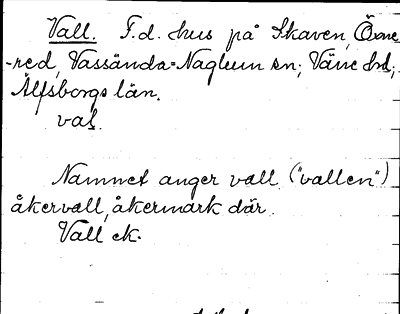 Vall. F.d. hus på Skaven, Öxne-
-red, Vassända=Naglum sn; Väne hd;
Älfsborgs län.
val.
Namnet anger vall ("vallen")
åkervall, åkermark där.
Vall ek.